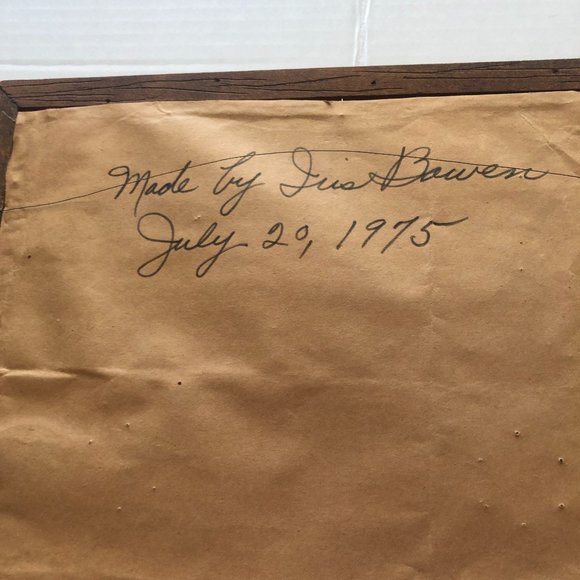 Made by Iris Bowen
July 20, 1975